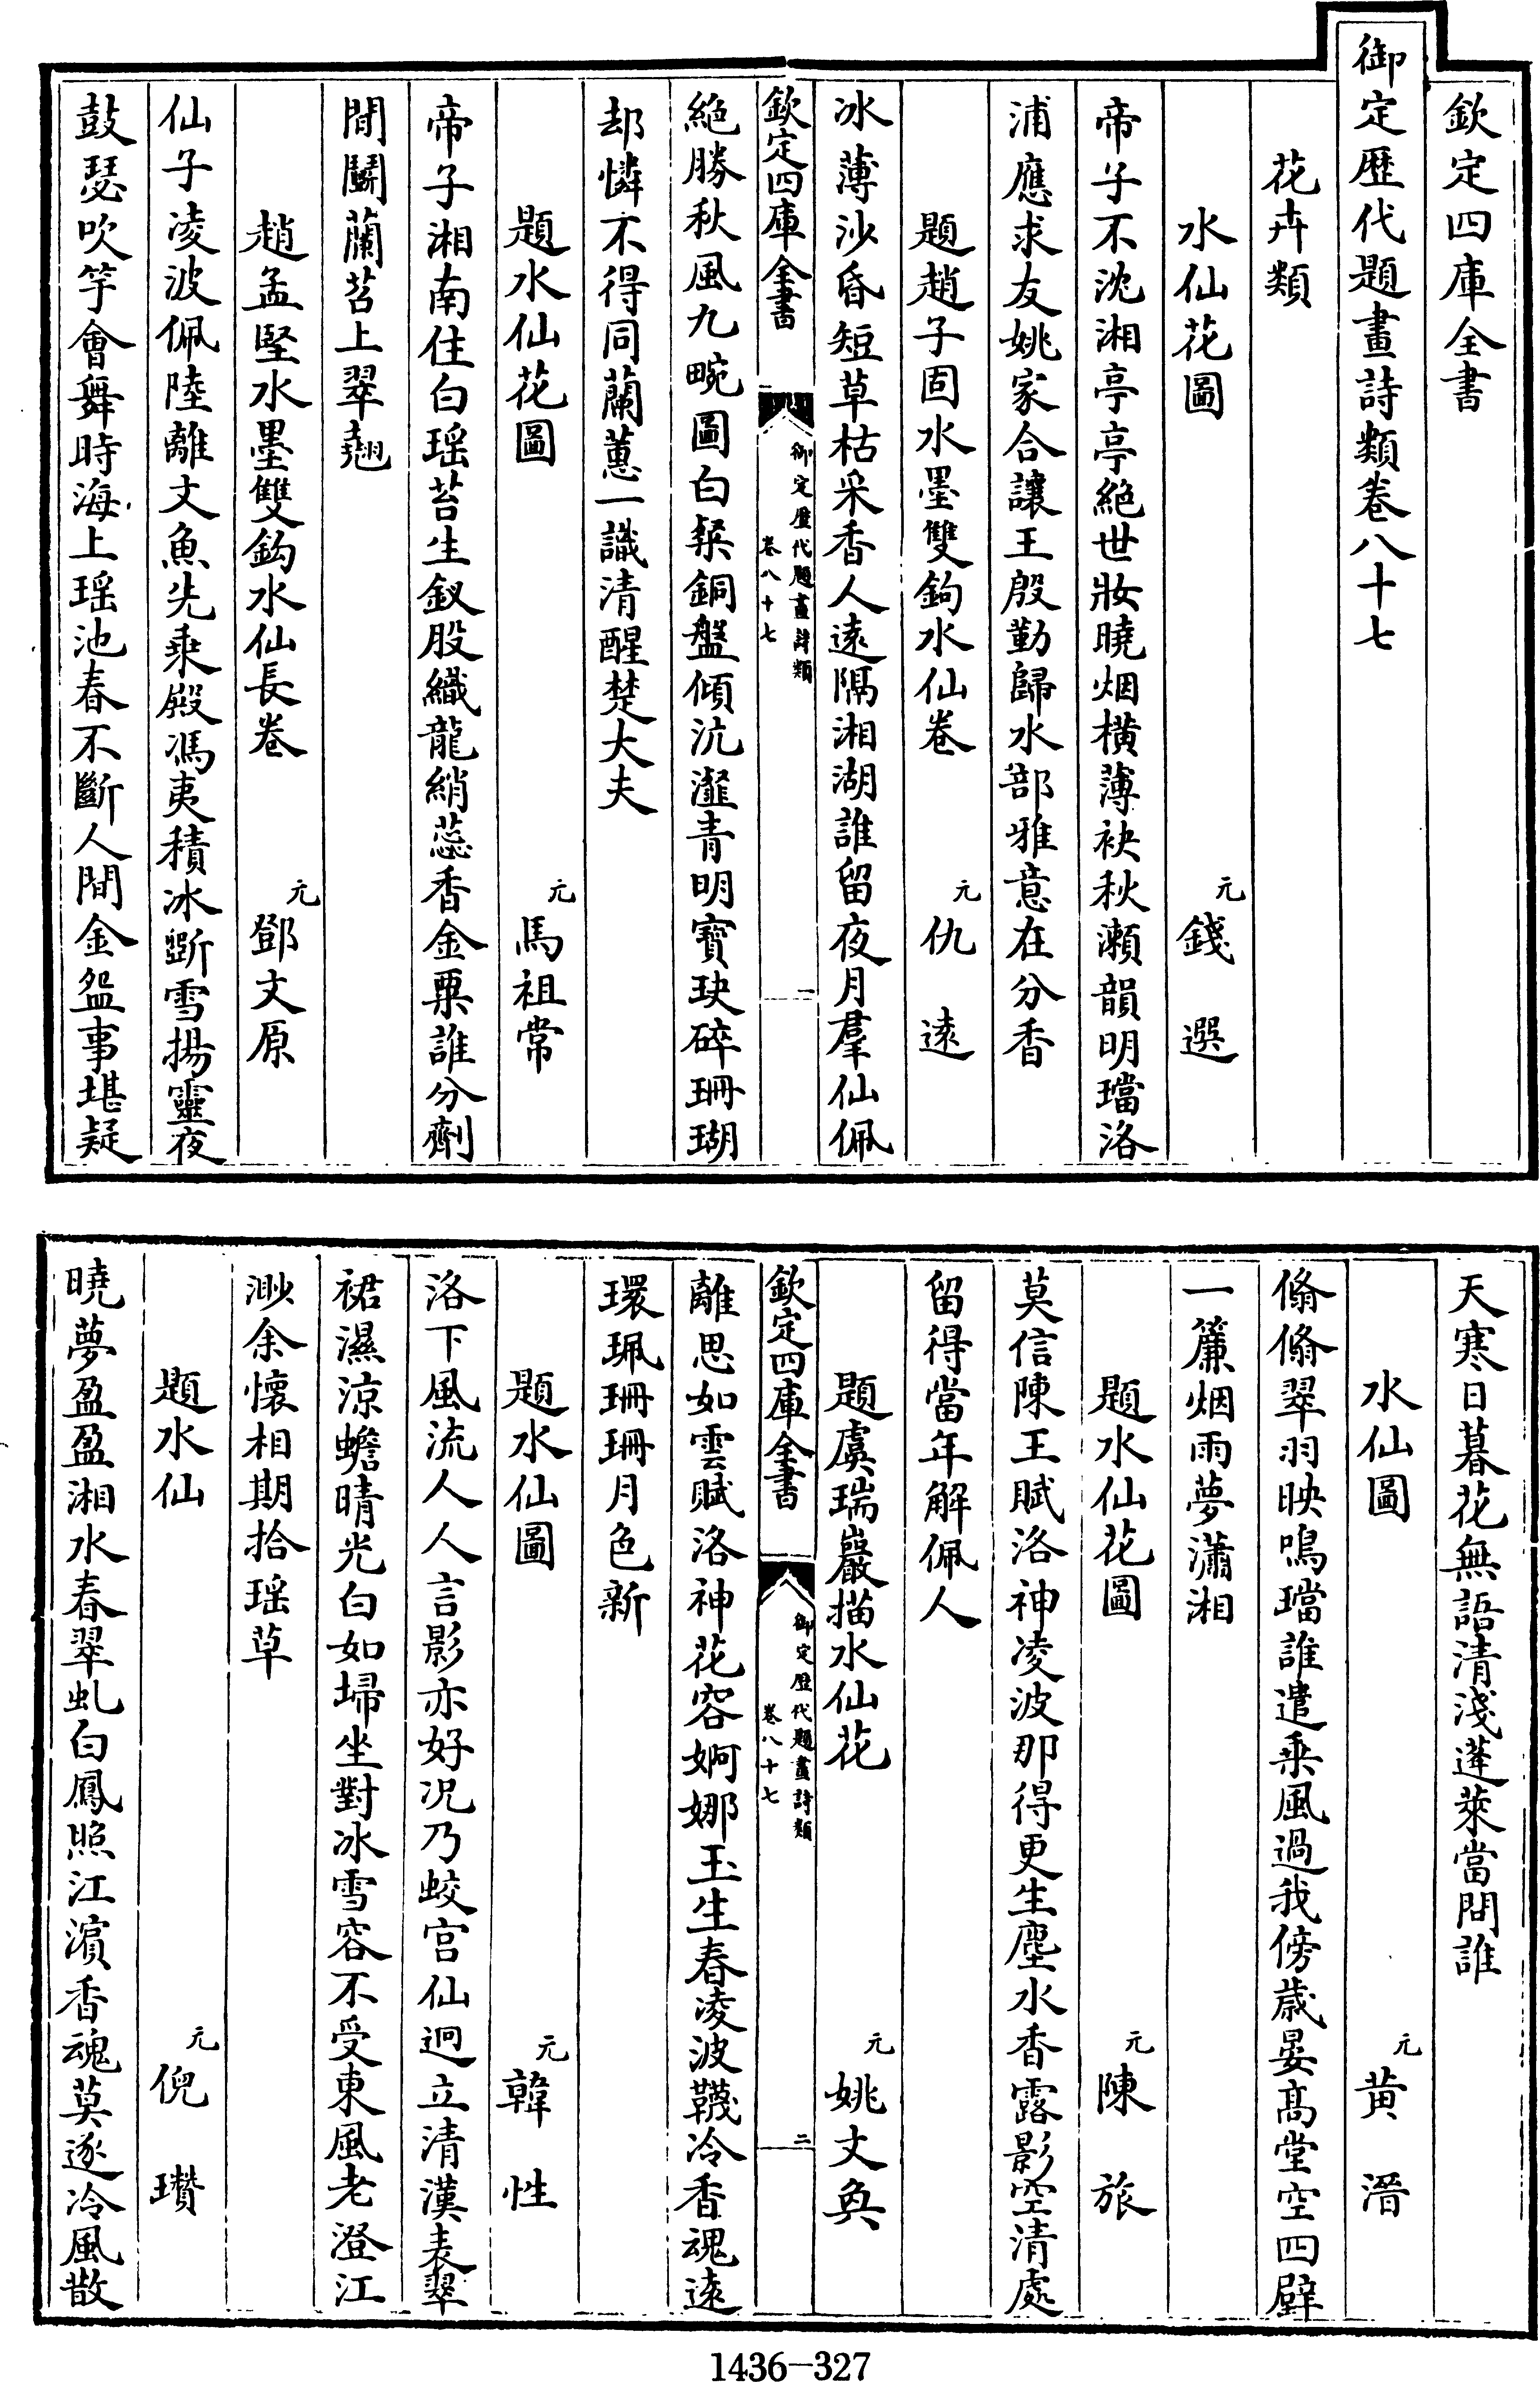 欽定四庫全書
御定歴代題畫詩類卷八十七
花卉類
水仙花圖 元 錢選
帝子不沈湘亭亭絶世妝曉烟横薄袂秋瀬韻明璫洛
浦應求友姚家合讓王殷勤歸水部雅意在分香
題趙子固水墨雙鉤水仙卷 元 仇遠
冰薄沙昏短草枯采香人遠隔湘湖誰留夜月羣仙佩
欽定四庫全書 御定歴代題畫詩類 卷八十七 一
絶勝秋風九畹圖白椉銅盤傾沆瀣青明寳玦碎珊瑚
却憐不得同蘭蕙一識清醒楚大夫
題水仙花圖 元 馬祖常
帝子湘南住白瑶苔生釵股織龍綃蕊香金粟誰分劑
閒鬬蘭苕上翠翹
趙孟堅水墨雙鈎水仙長卷 元 鄧文原
仙子凌波佩陸離文魚先乘殿馮夷積冰斵雪揚靈夜
鼓瑟吹竽會舞時海上瑶池春不斷人間金盌事堪疑
天寒日暮花無語清淺蓬萊當問誰
水仙圖 元 黄溍
翛翛翠羽映鳴璫誰遣乘風過我傍歲晏髙堂空四壁
一簾烟雨夢瀟湘
題水仙花圖 元 陳旅
莫信陳王賦洛神凌波那得更生塵水香露影空清處
留得當年解佩人
題虞瑞巖描水仙花 元 姚文奐
欽定四庫全書 御定歴代題畫詩類 卷八十七 二
離思如雲賦洛神花容婀娜玉生春凌波韈冷香魂遠
環珮珊珊月色新
題水仙圖 元 韓性
洛下風流人人言影亦好况乃蛟宫仙迥立清漢表翠
裙濕涼蟾晴光白如埽坐對冰雪容不受東風老澄江
渺余懷相期拾瑶草
題水仙 元 倪瓚
曉夢盈盈湘水春翠虬白鳳照江濵香魂莫逐冷風散
1436-327